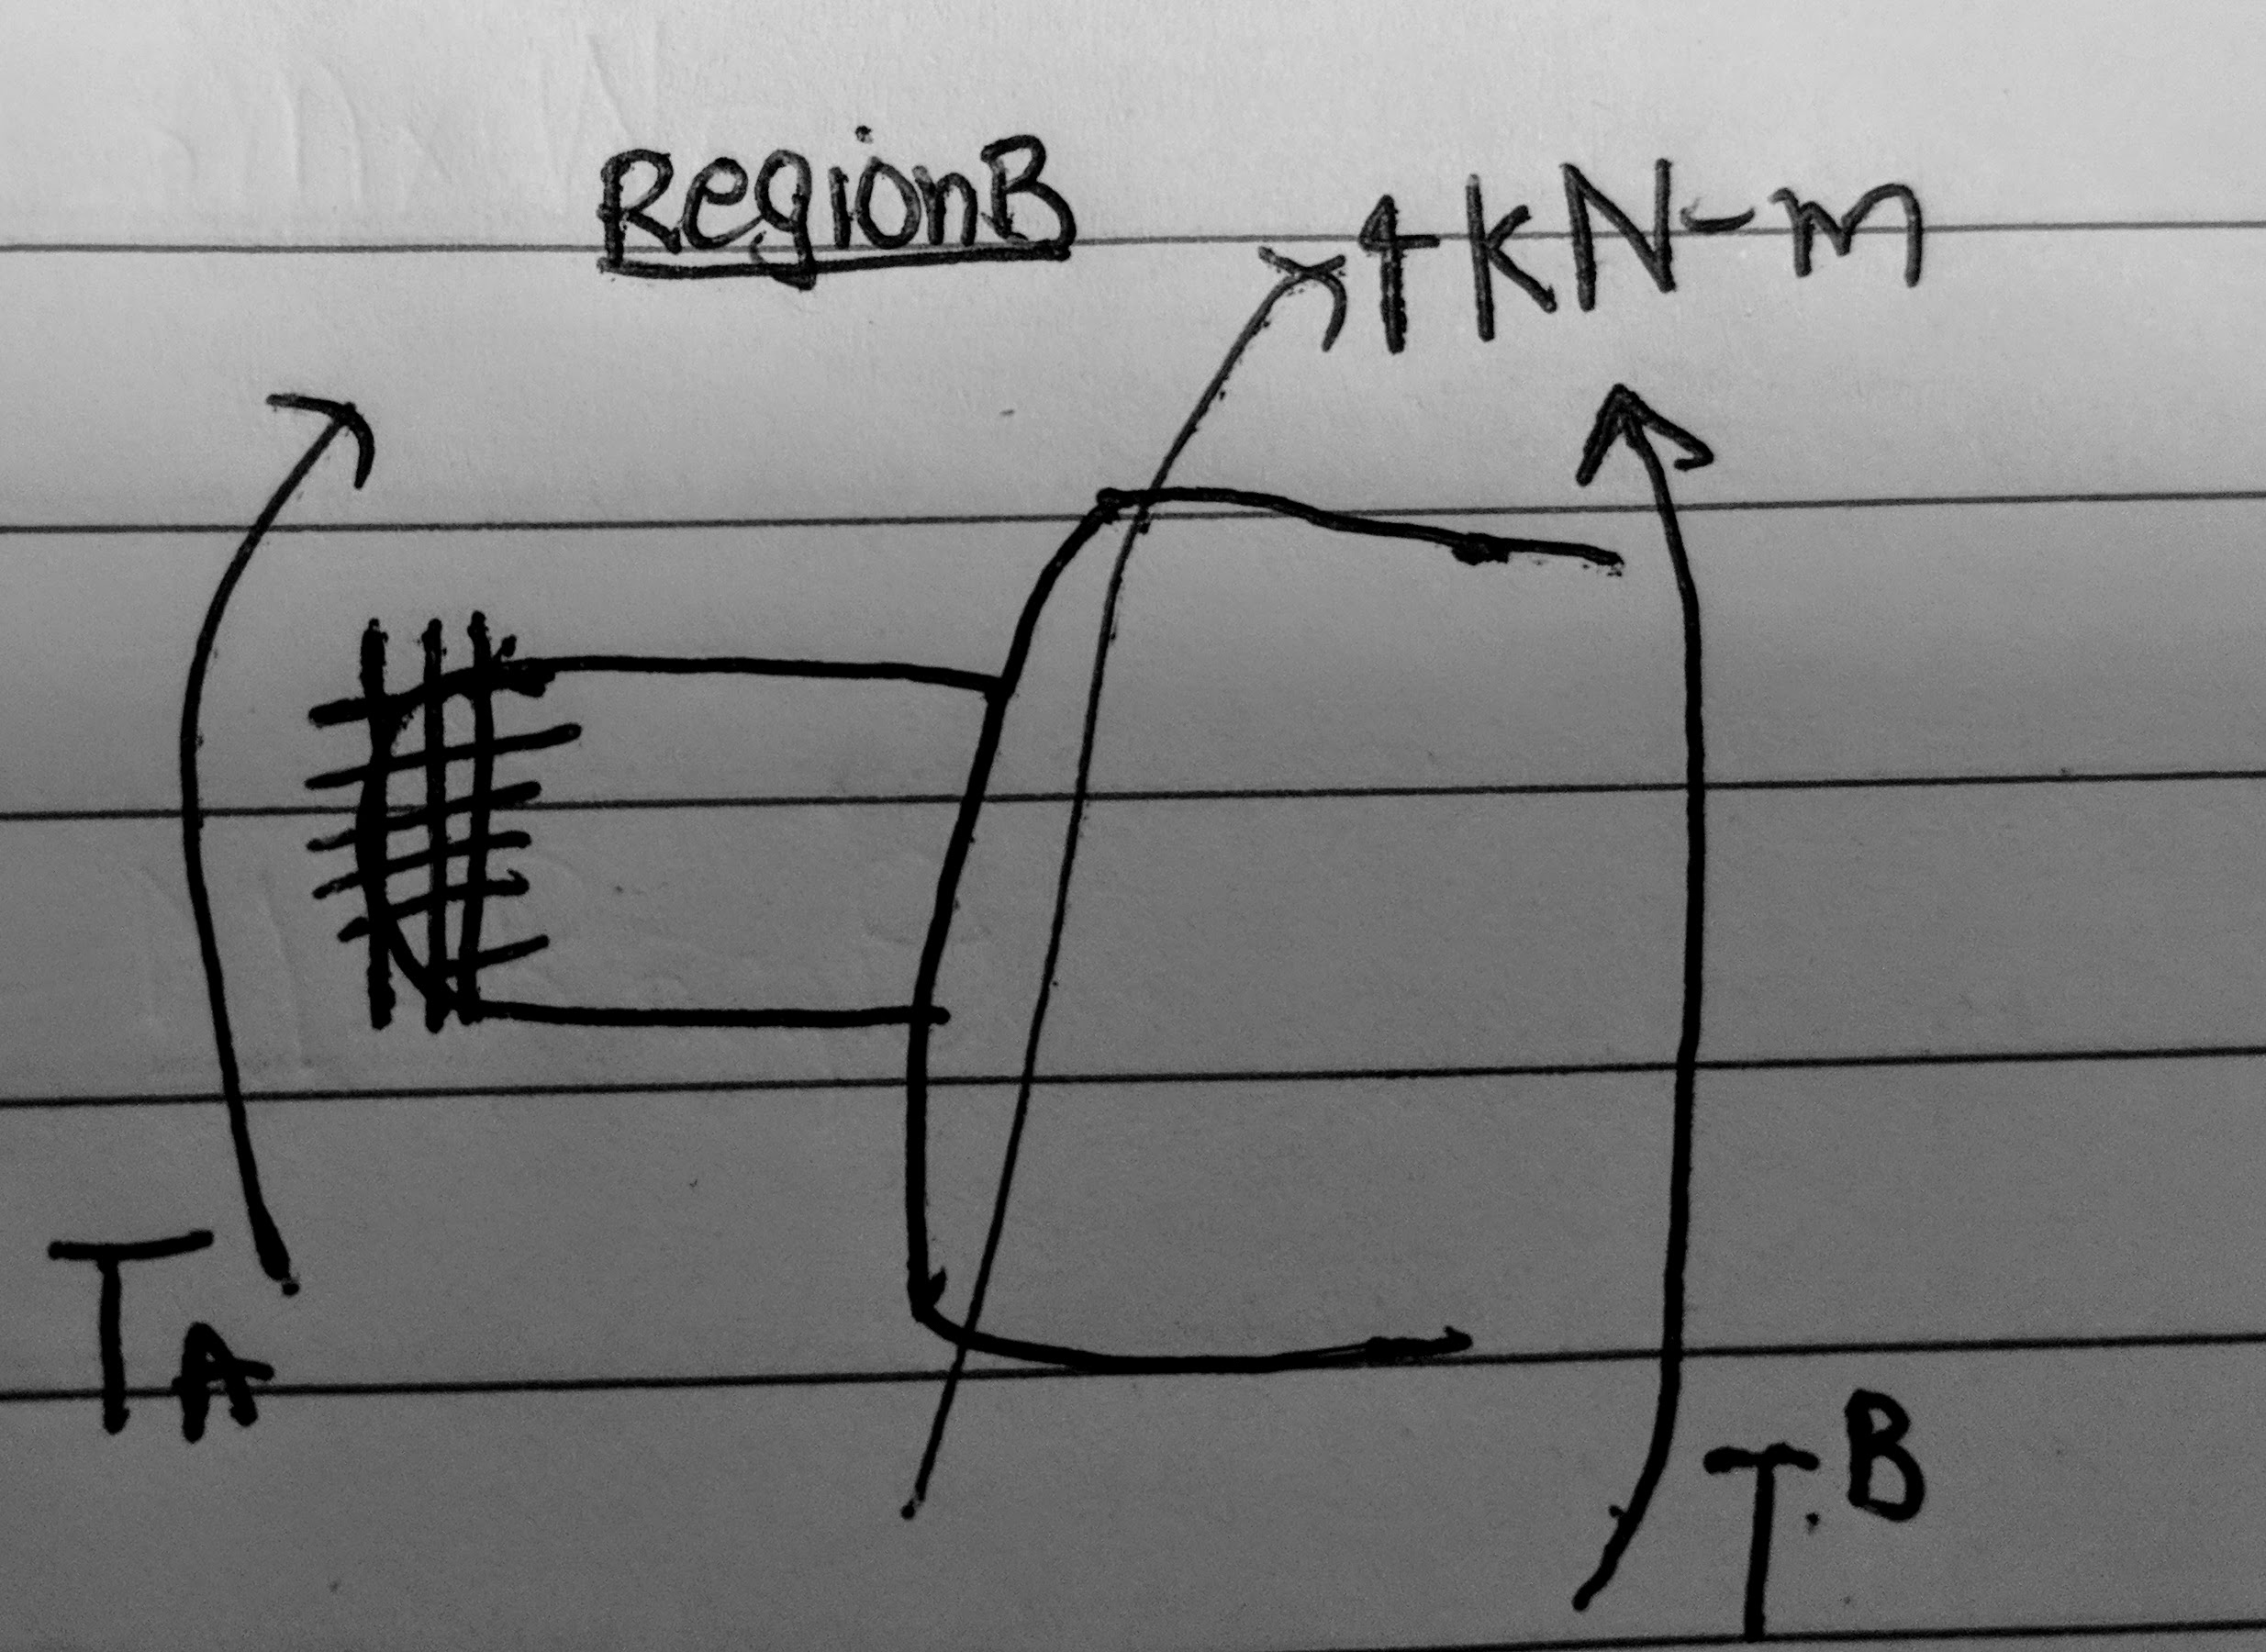 RegionB
4kN-m
TA
TB